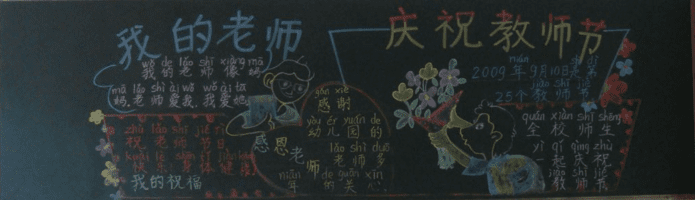 我的老师
wǒ de lǎo shī xiàng mā
我的老师像妈
mā lǎo shī ài wǒ wǒ ài tā
妈,老师爱我,我爱她
zhù lǎo shī jié rì
祝老师节日
kuài lè shēn tǐ jiàn kāng
快乐身体健康
我的祝福
gǎn xiè
感谢
yòu ér yuán de
幼儿园的
lǎo shī duō
老师多
nián de guān xīn
年的关心
感恩老师
庆祝教师节
nián
2009年9月10日是第
25个教师节
quán xiào shī shēng
全校师生
yì qǐ qìng zhù
一起庆祝
jiào shī jié
教师节